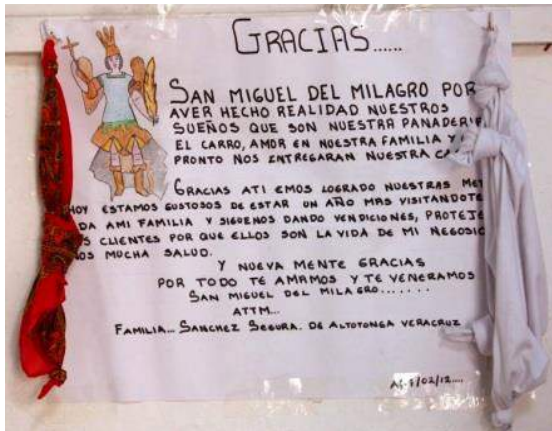 GRACIAS......
SAN MIGUEL DEL MILAGRO POR
AVER HECHO REALIDAD NUESTROS
SUEÑOS QUE SON NUESTRA PANADERIA
EL CARRO, AMOR EN NUESTRA FAMILIA Y
PRONTO NOS ENTREGARAN NUESTRA
GRACIAS ATI EMOS LOGRADO NUESTRAS
HOY ESTAMOS GUSTOSOS DE ESTAR UN AÑO MAS VISITANDOTE
AMI FAMILIA Y SIGUENOS DANDO VENDICIONES, PROTEJE
CLIENTES POR QUE ELLOS SON LA VIDA DE MI NEGOSIO
MUCHA SALUD.
Y NUEVA MENTE GRACIAS
POR TODO TE AMAMOS Y TE VENERAMOS
SAN MIGUEL DEL MILAGRO.......
ATTM...
FAMILIA... SANCHEZ SEGURA. DE ALTOTONGA VERACRUZ
/02/12....